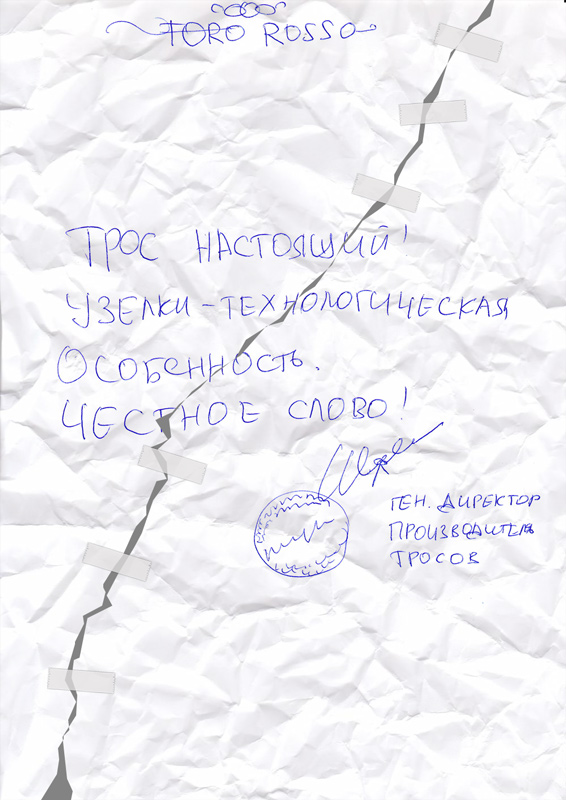 TORO ROSSO
ТРОС НАСТОЯЩИЙ!
УЗЕЛКИ-ТЕХНОЛОГИЧЕСКАЯ
ОСОБЕННОСТЬ.
ЧЕСТНОЕ СЛОВО!
ГЕН. ДИРЕКТОР
ПРОИЗВОДИТЕЛЬ
ТРОСОВ